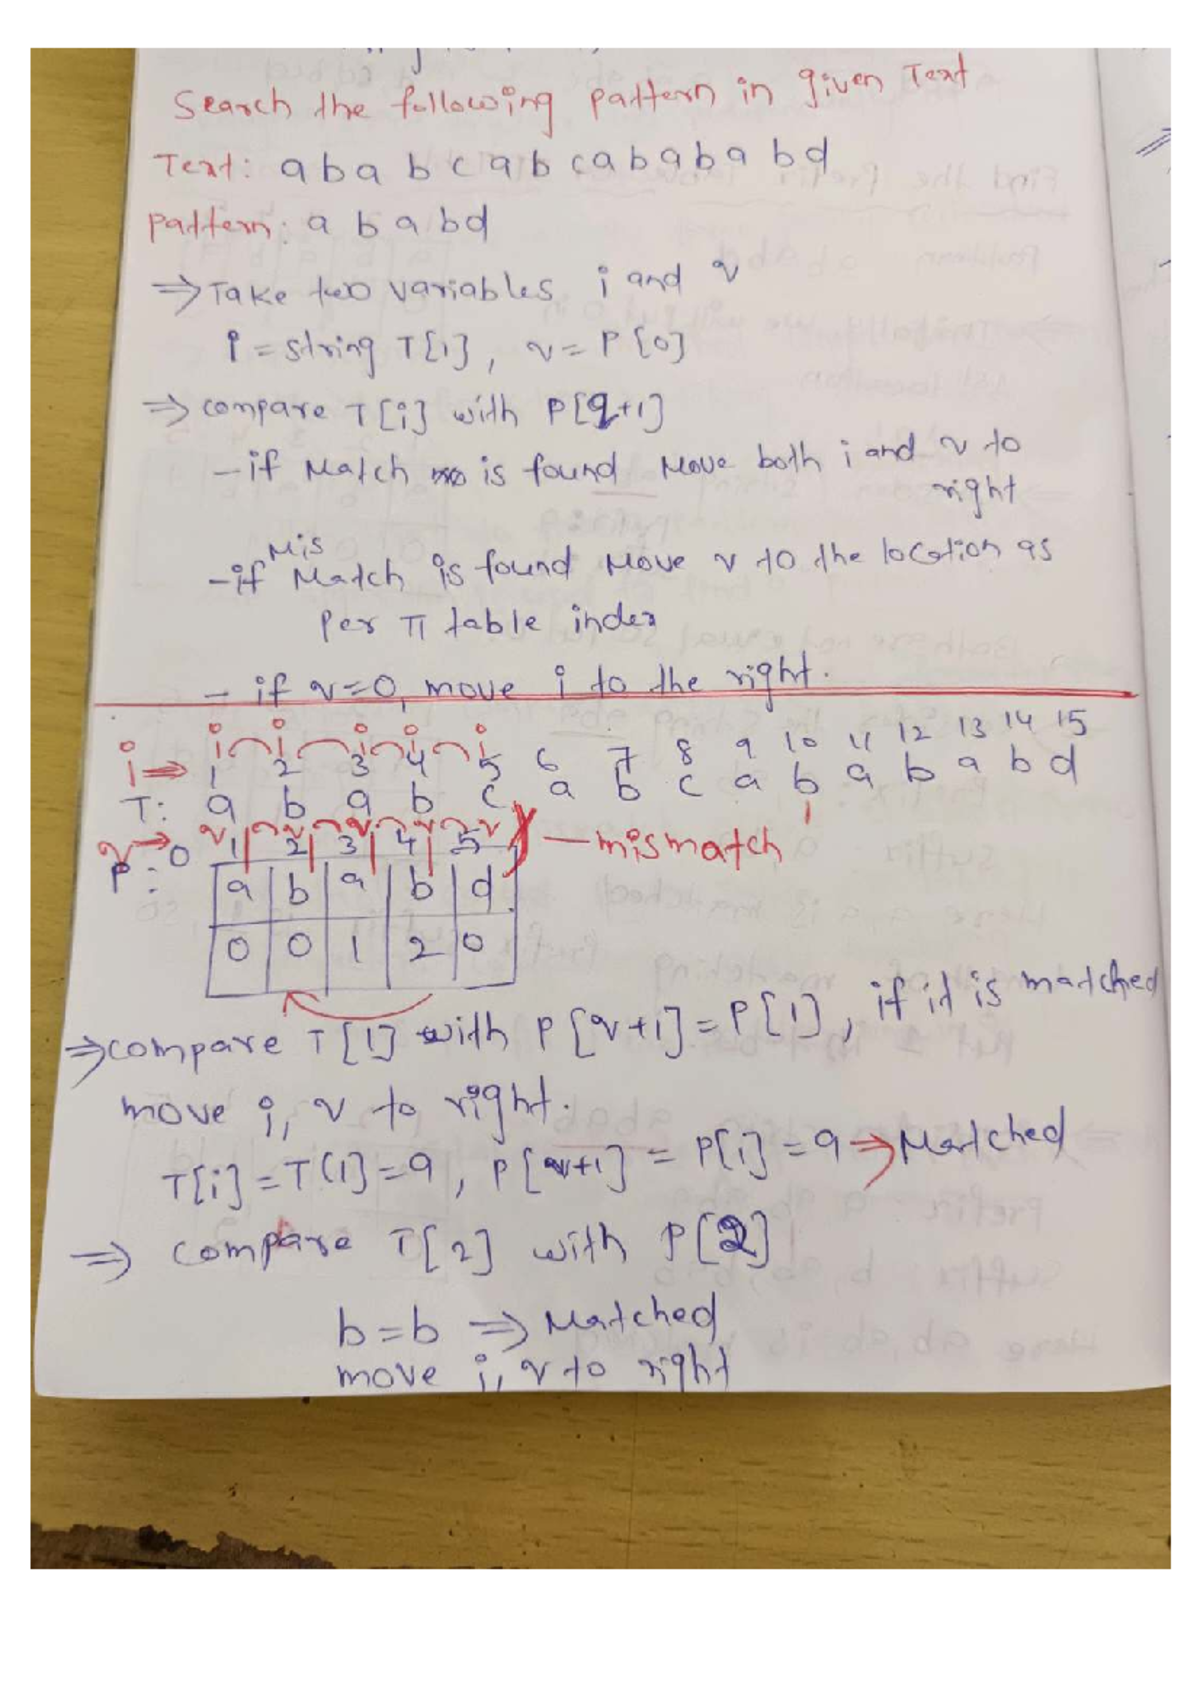 Search the following pattern in given Text
Text: a b a b c a b c a b a b a b d
pattern: a b a b d
⇒ Take two variables i and q
i = string T[1], q = P[0]
⇒ compare T[i] with P[q+1]
- if Match is found Move both i and q to
right
- if Mis Match is found Move q to the location as
per π table index
- if q=0, move i to the right.
i i i i i
i ⇒ 1 2 3 4 5 6 7 8 9 10 11 12 13 14 15
T: a b a b c a b c a b a b a b d
q → 0 q 1 q 2 q 3 q 4 q 5 — mismatch
P: a b a b d
0 0 1 2 0
⇒ compare T[1] with P[q+1] = P[1], if it is matched
move i, q to right.
T[i] = T[1] = a, P[q+1] = P[i] = a ⇒ Matched
⇒ compare T[2] with P[2]
b = b ⇒ Matched
move i, q to right